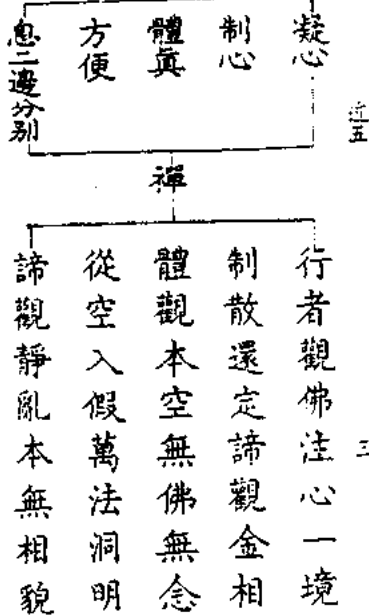 近五
三
凝心
制心
體眞
方便
息二邊分别
禪
行者觀佛注心一境
制散還定諦觀金相
體觀本空無佛無念
從空入假萬法洞明
諦觀靜亂本無相貌